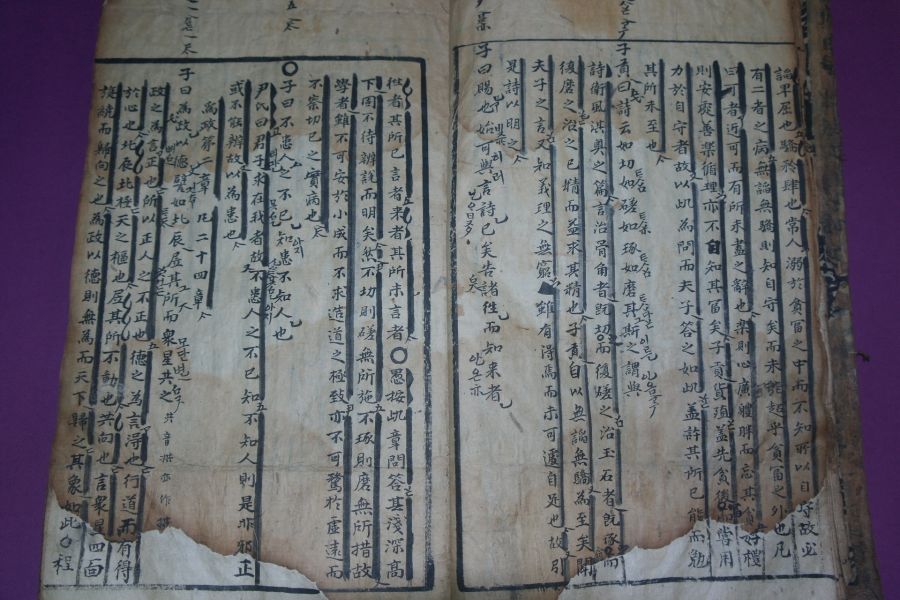 諂卑屈也驕矜肆也常人溺於貧富之中而不知所以自守故必
有二者之病無諂無驕則知自守矣而未能超乎貧富之外也凡
曰可者近可而有所未盡之辭也樂則心廣體胖而忘其貧好禮
則安處善樂循理亦不自知其富矣子貢貨殖盖先貧後富而嘗用
力於自守者故以此為問而夫子答之如此盖許其所已能而勉
其所未至也
子貢曰詩云如切如磋如琢如磨其斯之謂與
詩衛風淇奧之篇言治骨角者旣切而後磋之治玉石者旣琢而
復磨之治之已精而益求其精也子貢自以無諂無驕為至矣聞
夫子之言又知義理之無窮雖有得焉而未可遽自足也故引
是詩以明之
子曰賜也始可與言詩已矣告諸徃而知来者
徃者其所已言者来者其所未言者○愚按此章問答其淺深高
下固不待辨說而明矣然不切則磋無所施不琢則磨無所措故
學者雖不可安於小成而不求造道之極致亦不可騖於虛遠而
不察切已之實病也
○子曰不患人之不已知患不知人也
尹氏曰君子求在我者故不患人之不已知不知人則是非邪正
或不能辨故以為患也
為政第二章 凡二十四章
子曰為政以德譬如北辰居其所而衆星共之 共音洪亦作拱
政之為言正也所以正人之不正也德之為言得也行道而有得
於心也北辰北極天之樞也居其所不動也共向也言衆星四面
旋繞而歸向之也為政以德則無為而天下歸之其象如此○程